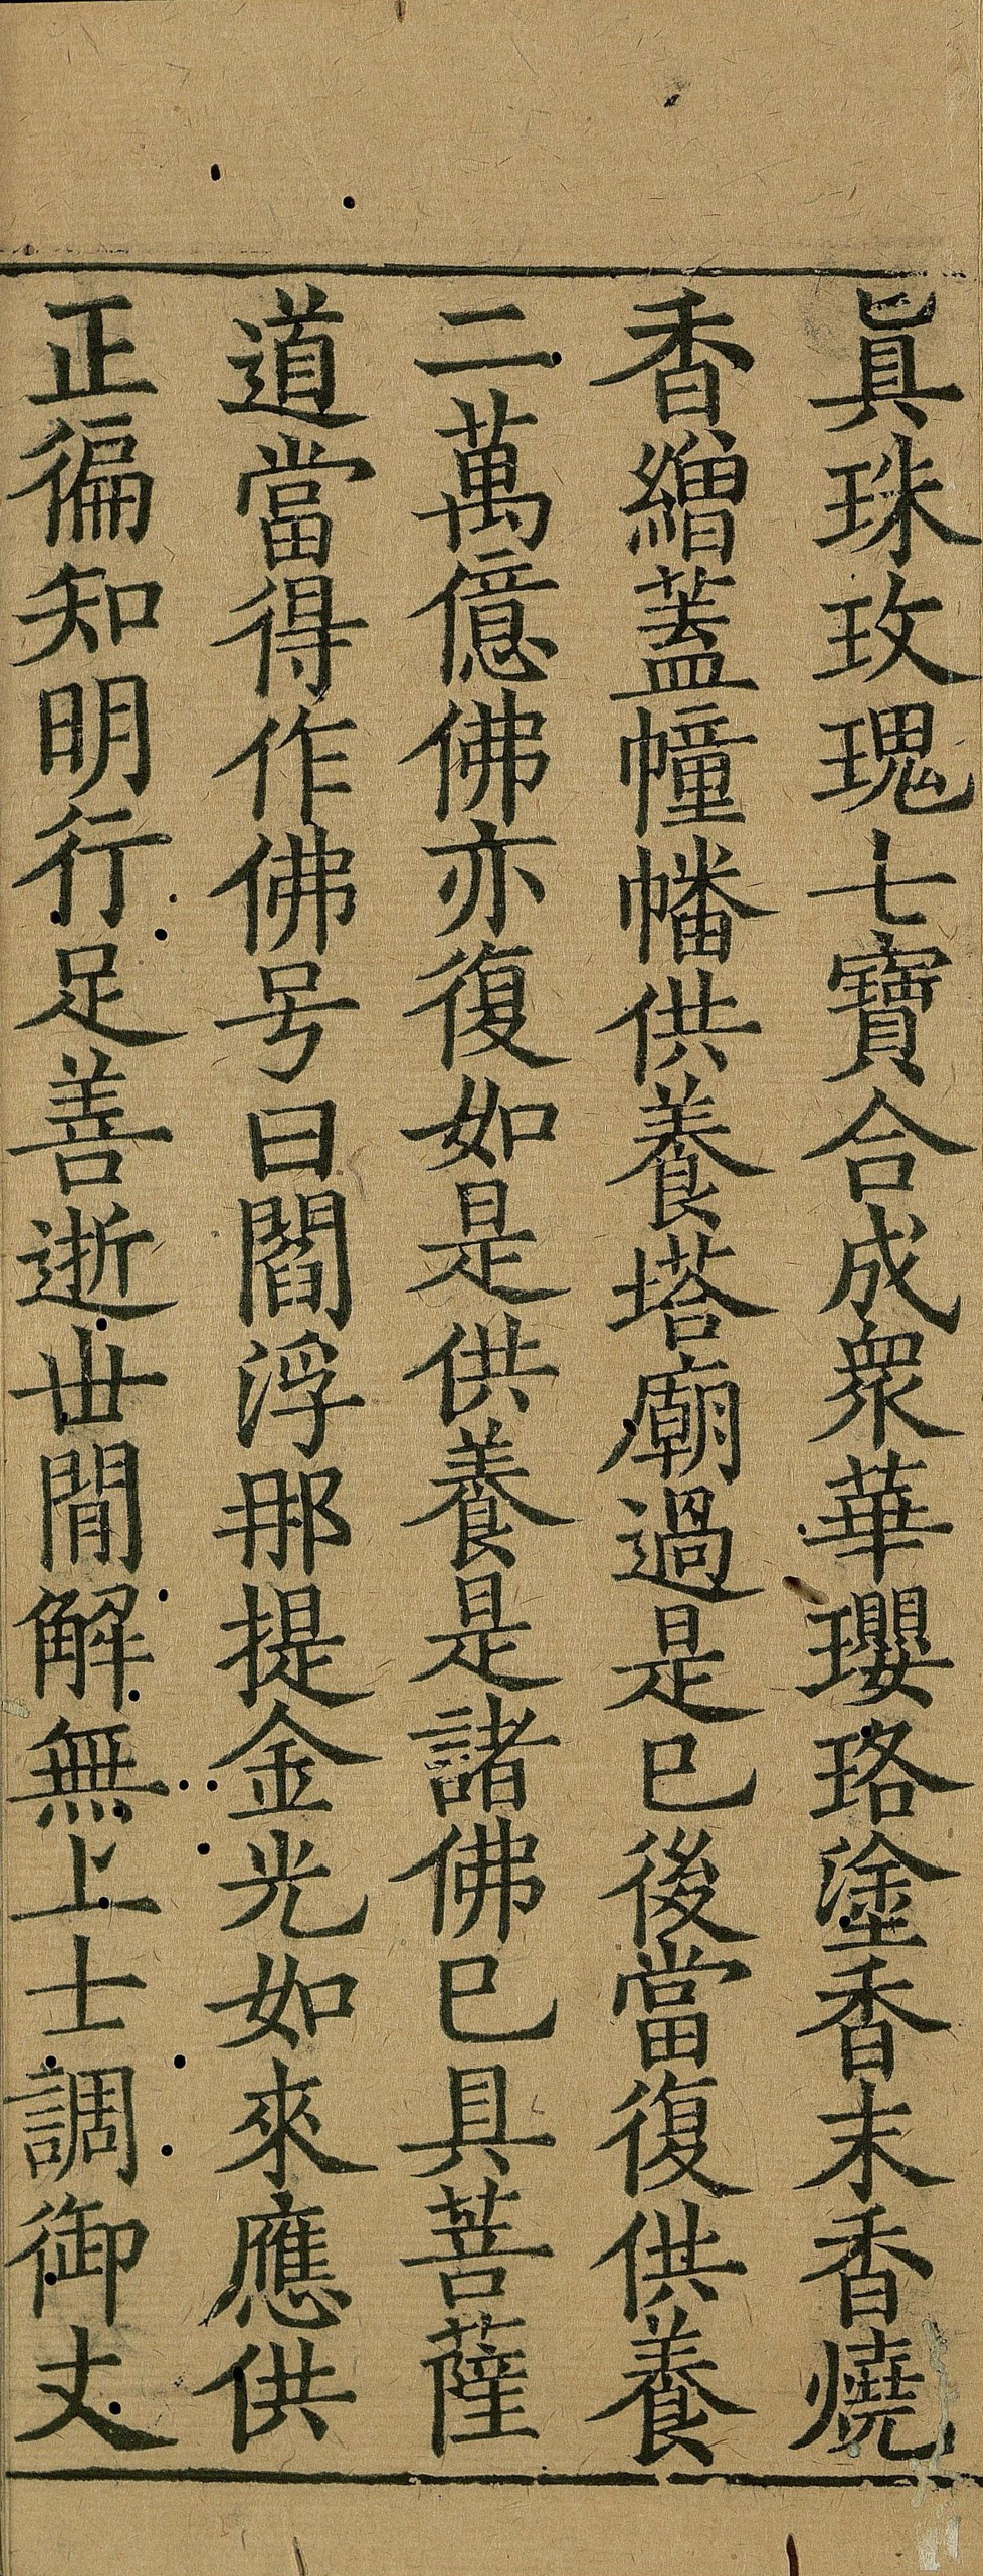 眞珠玫瑰七寶合成衆華瓔珞塗香末香燒
香繒蓋幢幡供養塔廟過是已後當復供養
二萬億佛亦復如是供養是諸佛已具菩薩
道當得作佛号曰閻浮那提金光如來應供
正徧知明行足善逝丗閒解無上士調御丈